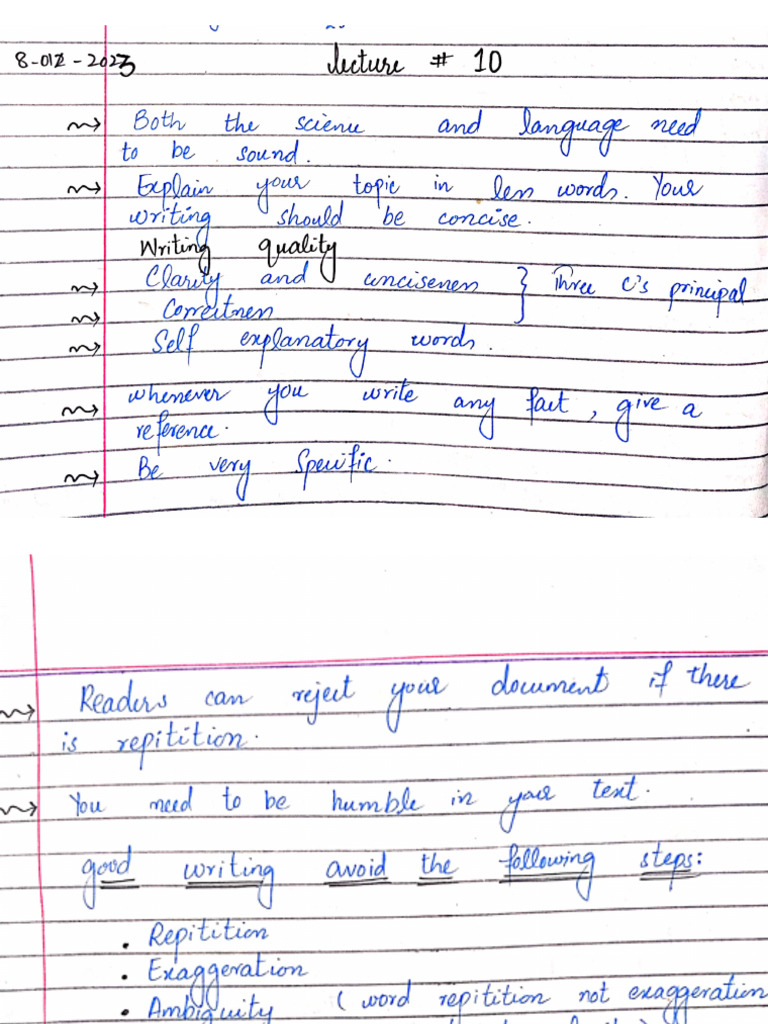 8-012-2023 lecture # 10
Both the science and language need
to be sound.
Explain your topic in less words. Your
writing should be concise.
Writing quality
Clarity and conciseness } Three C's principal
Correctness
Self explanatory words.
whenever you write any fact, give a
reference.
Be very Specific.
Readers can reject your document if there
is repitition.
You need to be humble in your text.
good writing avoid the following steps:
• Repitition
• Exaggeration
• Ambiguity (word repitition not exaggeration